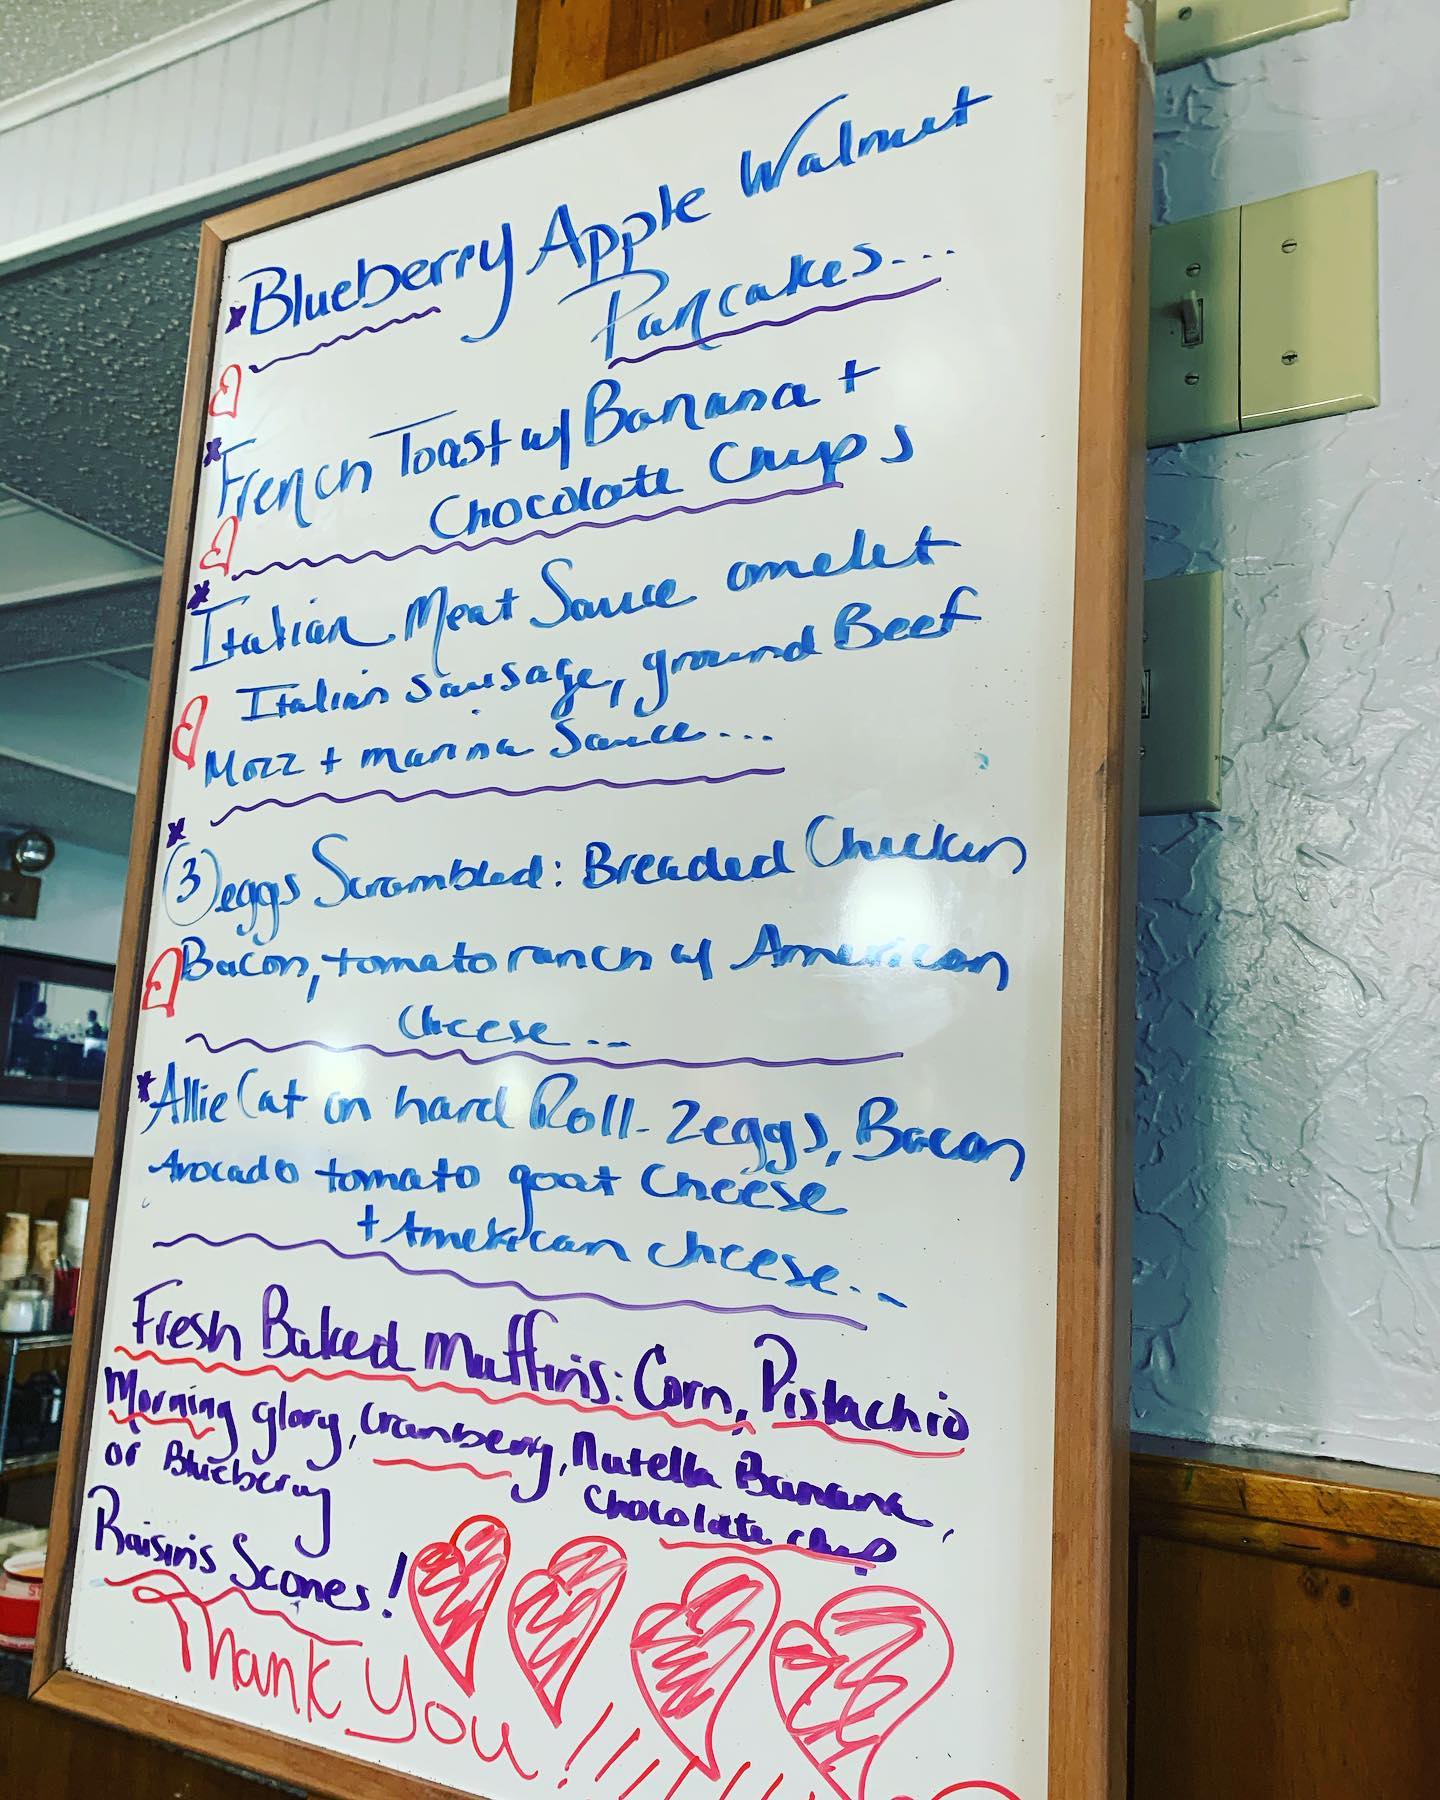 *Blueberry Apple Walnut
Pancakes...
*French Toast w/ Banana +
Chocolate Chips
*Italian Meat Sauce omelet
Italian sausage, ground Beef
Mozz + marina Sauce...
*(3) eggs Scrambled: Breaded Chicken
Bacon, tomato ranch w/ American
Cheese...
*Allie Cat on hard Roll - 2 eggs, Bacon
Avocado tomato goat Cheese
+ American cheese...
Fresh Baked Muffins: Corn, Pistachio
Morning glory, cranberry, Nutella Banana,
or Blueberry
Chocolate chip
Raisins Scones!
Thank You!!!!!!!